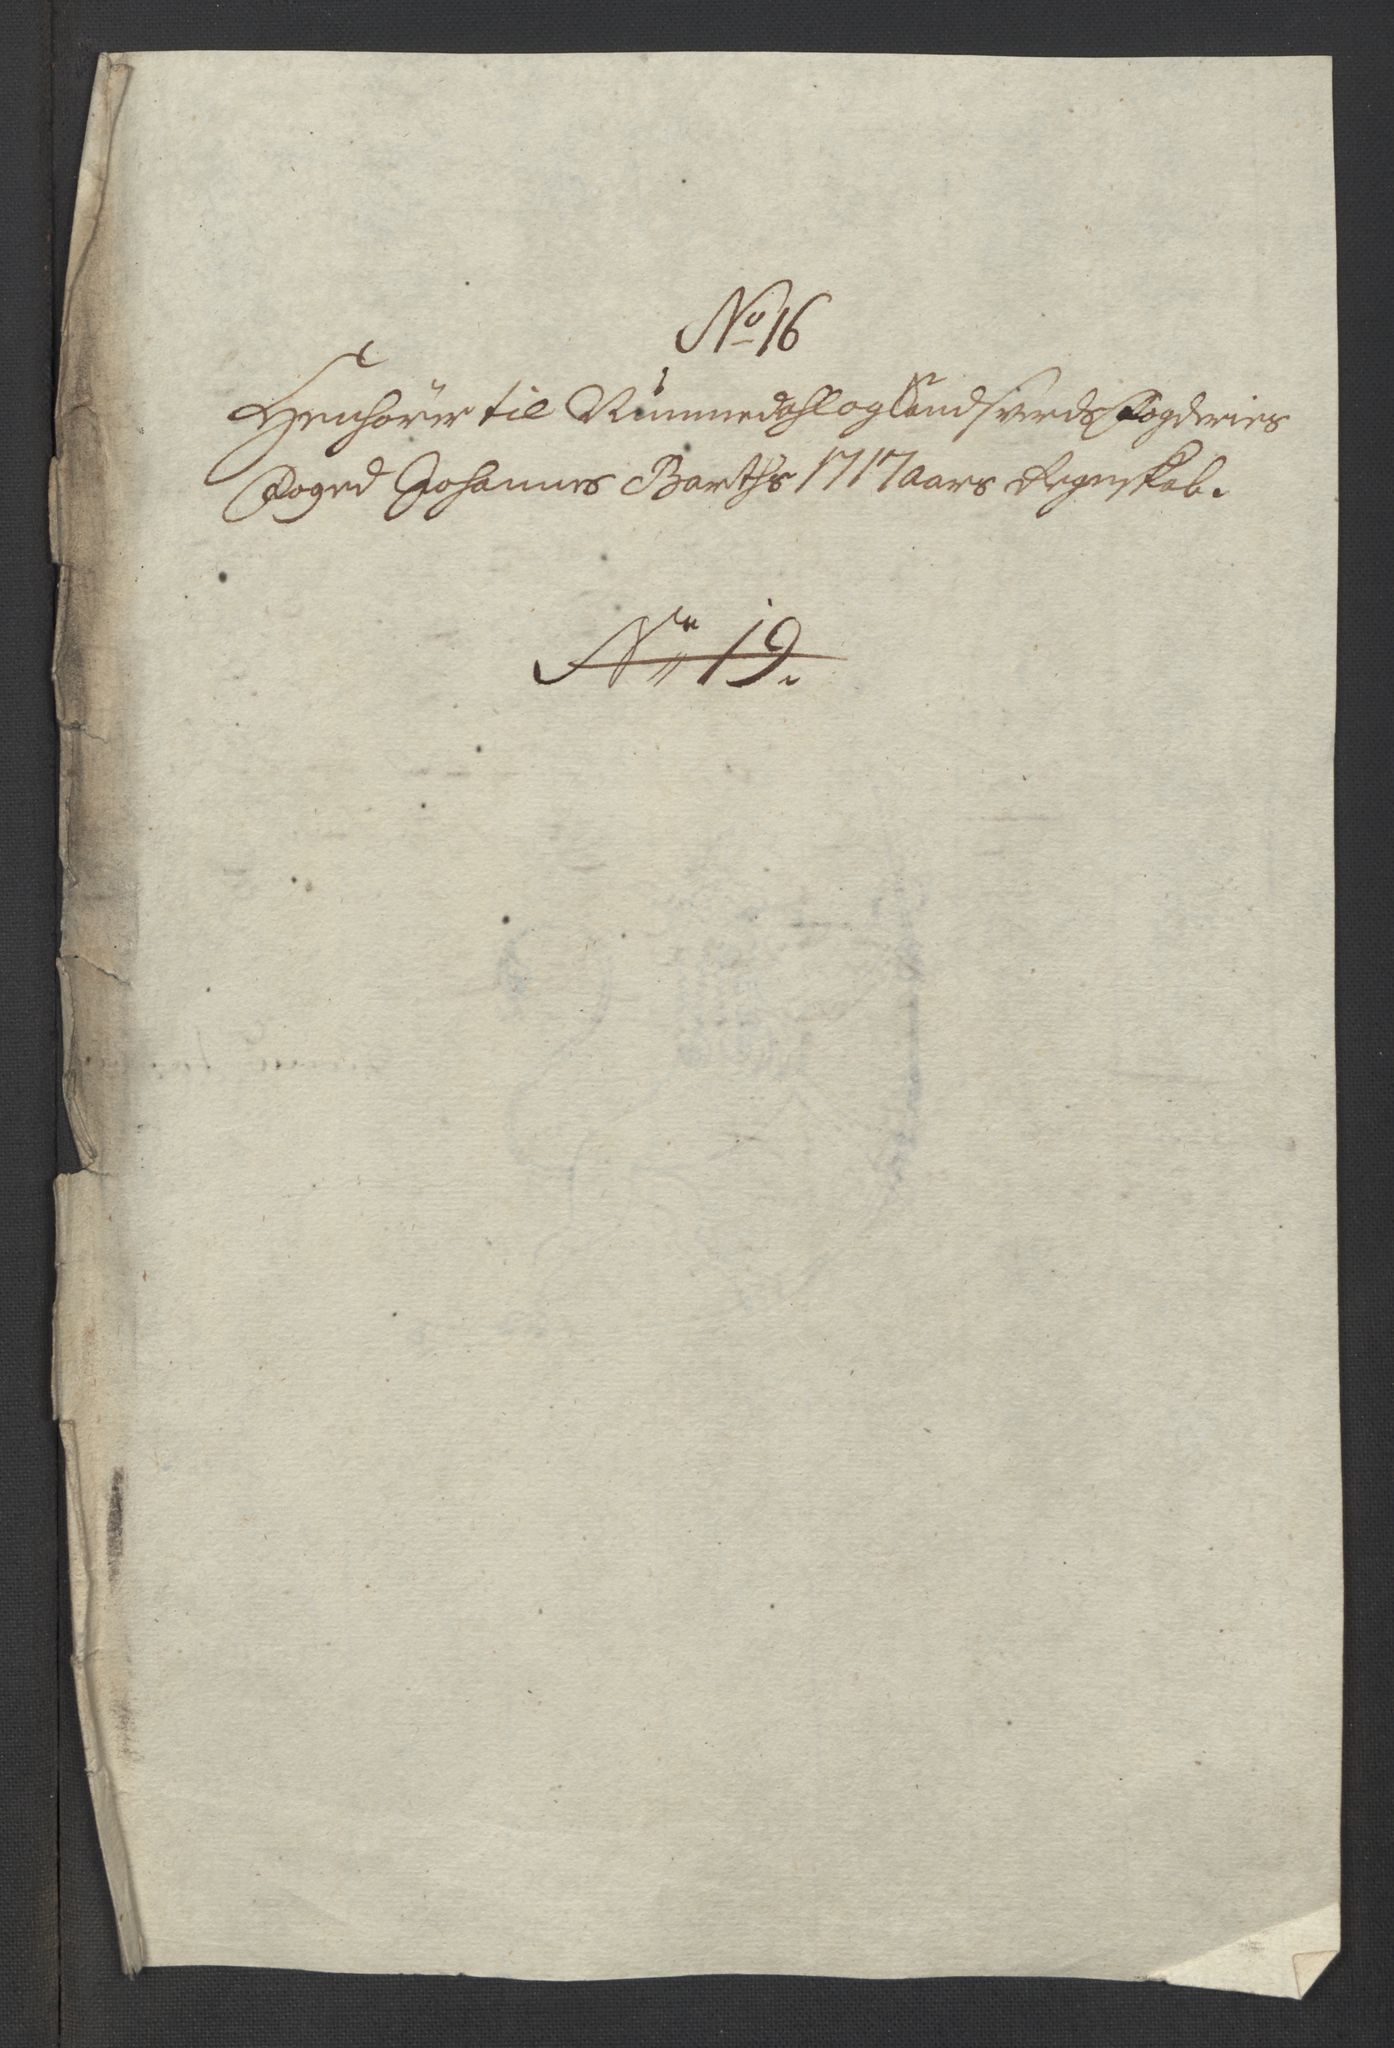 No 16
Henhörer til Nummedahl og Sandsverds Fogderies
Foged Johannes Barths 1717 aars Regnskab.
No 19.